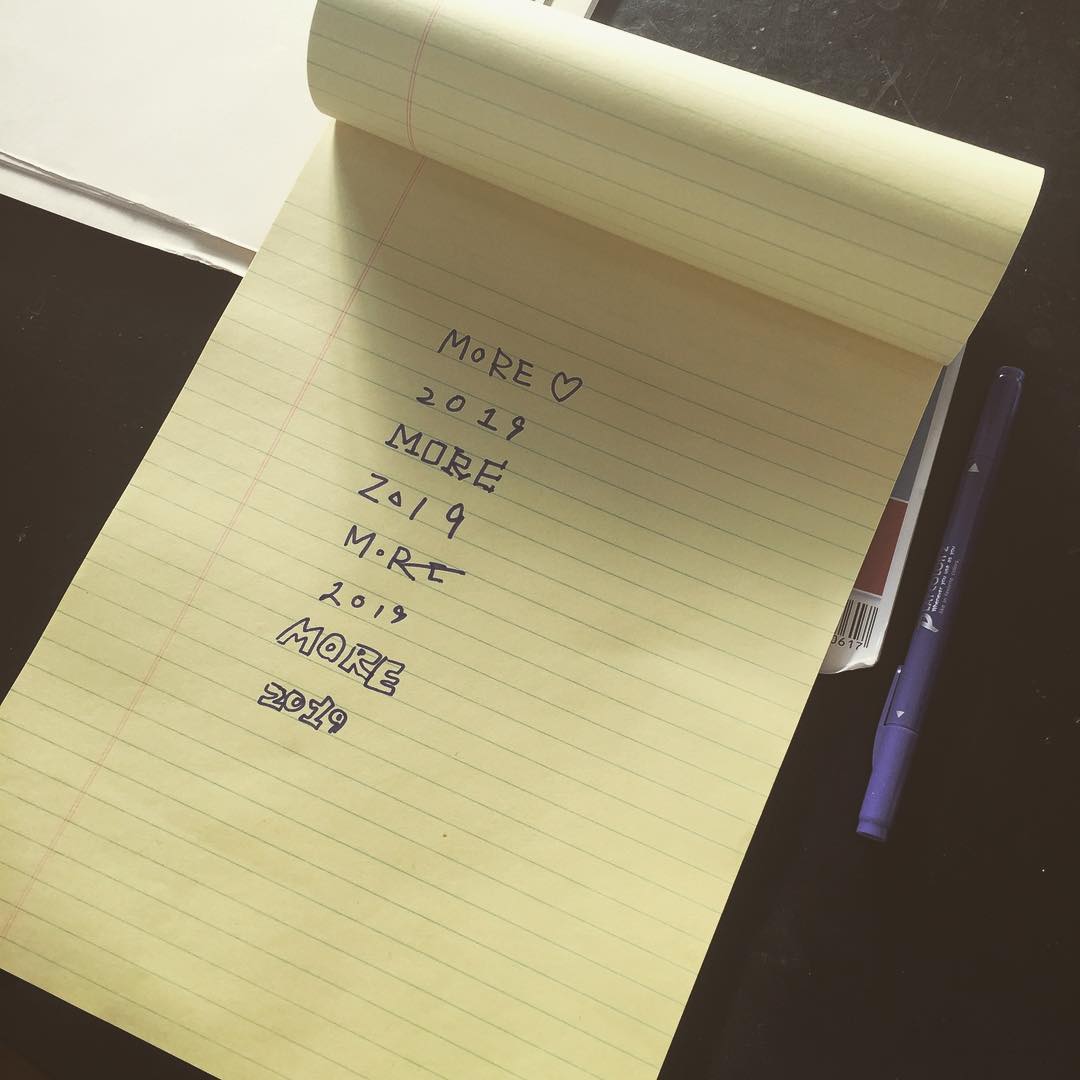 MORE ♡
2019
MORE
2019
MORE
2019
MORE
2019
0617